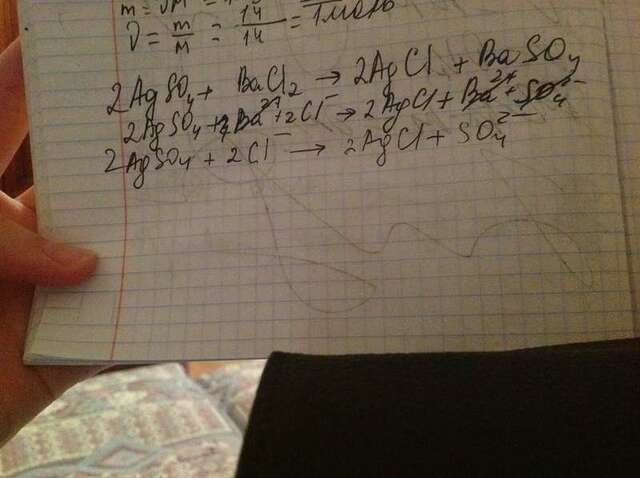 m = νM =
ν = m/M = 14/14 = 1 моль
2AgSO₄ + BaCl₂ → 2AgCl + BaSO₄
2AgSO₄ + Ba²⁺ + 2Cl⁻ → 2AgCl + Ba²⁺ + SO₄²⁻
2AgSO₄ + 2Cl⁻ → 2AgCl + SO₄²⁻